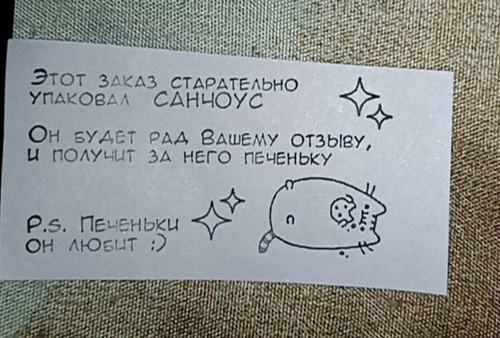 Этот заказ старательно
упаковал САНЧОУС
Он будет рад Вашему отзыву,
и получит за него печеньку
P.S. Печеньки
он любит :)